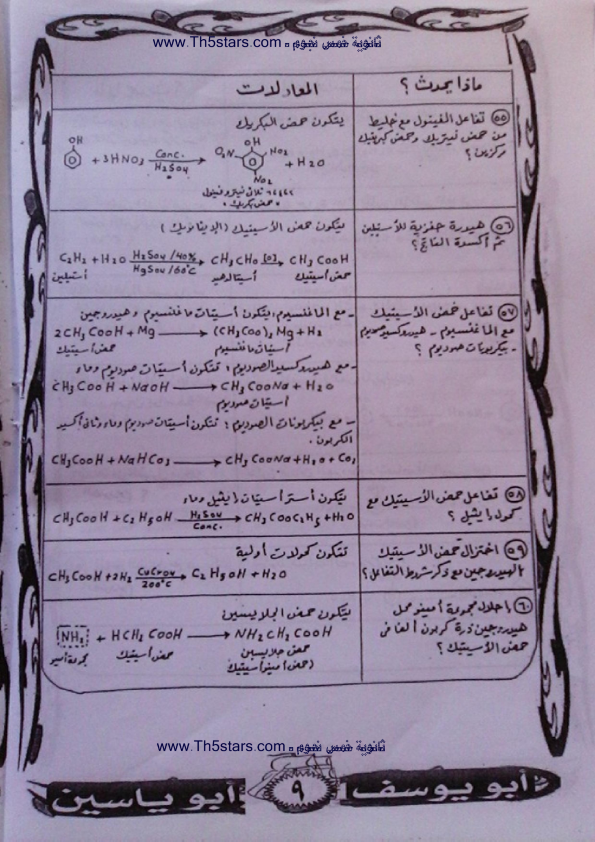 ثانوية خمس نجوم - www.Th5stars.com
ماذا يحدث ؟
المعادلات
٥٥ تفاعل الفينول مع خليط
من حمض نيتريك وحمض كبريتيك
مركزين ؟
يتكون حمض البكريك
OH OH
+ 3HNO3 Conc. H2SO4 O2N NO2 + H2O
NO2
٦،٤،٢ ثلاثى نيترو فينول
" حمض بكريك "
٥٦ هيدرة حفزية للأستيلين
ثم أكسدة الناتج ؟
يتكون حمض الأسيتيك ( الإيثانويك )
C2H2 + H2O H2SO4/40% HgSO4/60°C CH3CHO [O] CH3COOH
أستيلين أسيتالدهيد حمض أسيتيك
٥٧ تفاعل حمض الأسيتيك
مع الماغنسيوم - هيدروكسيد صوديوم
- بيكربونات صوديوم ؟
- مع الماغنسيوم : يتكون أسيتات ماغنسيوم وهيدروجين
2CH3COOH + Mg (CH3COO)2Mg + H2
حمض أسيتيك أسيتات ماغنسيوم
- مع هيدروكسيد الصوديوم : تتكون أسيتات صوديوم وماء
CH3COOH + NaOH CH3COONa + H2O
أسيتات صوديوم
- مع بيكربونات الصوديوم : تتكون أسيتات صوديوم وماء وثانى أكسيد
الكربون .
CH3COOH + NaHCO3 CH3COONa + H2O + CO2
٥٨ تفاعل حمض الأسيتيك مع
كحول إيثيل ؟
يتكون أستر أسيتات إيثيل وماء
CH3COOH + C2H5OH H2SO4 Conc. CH3COOC2H5 + H2O
٥٩ اختزال حمض الأسيتيك
بالهيدروجين مع ذكر شروط التفاعل ؟
تتكون كحولات أولية
CH3COOH + 2H2 CuCrO4 200°C C2H5OH + H2O
٦٠ إحلال مجموعة أمينو محل
هيدروجين ذرة كربون ألفا فى
حمض الأسيتيك ؟
يتكون حمض الجلايسين
NH2 + HCH2COOH NH2CH2COOH
مجموعة أمينو حمض أسيتيك حمض جلايسين
( حمض أمينو أسيتيك )
ثانوية خمس نجوم - www.Th5stars.com
أبو يوسف ٩ أبو ياسين